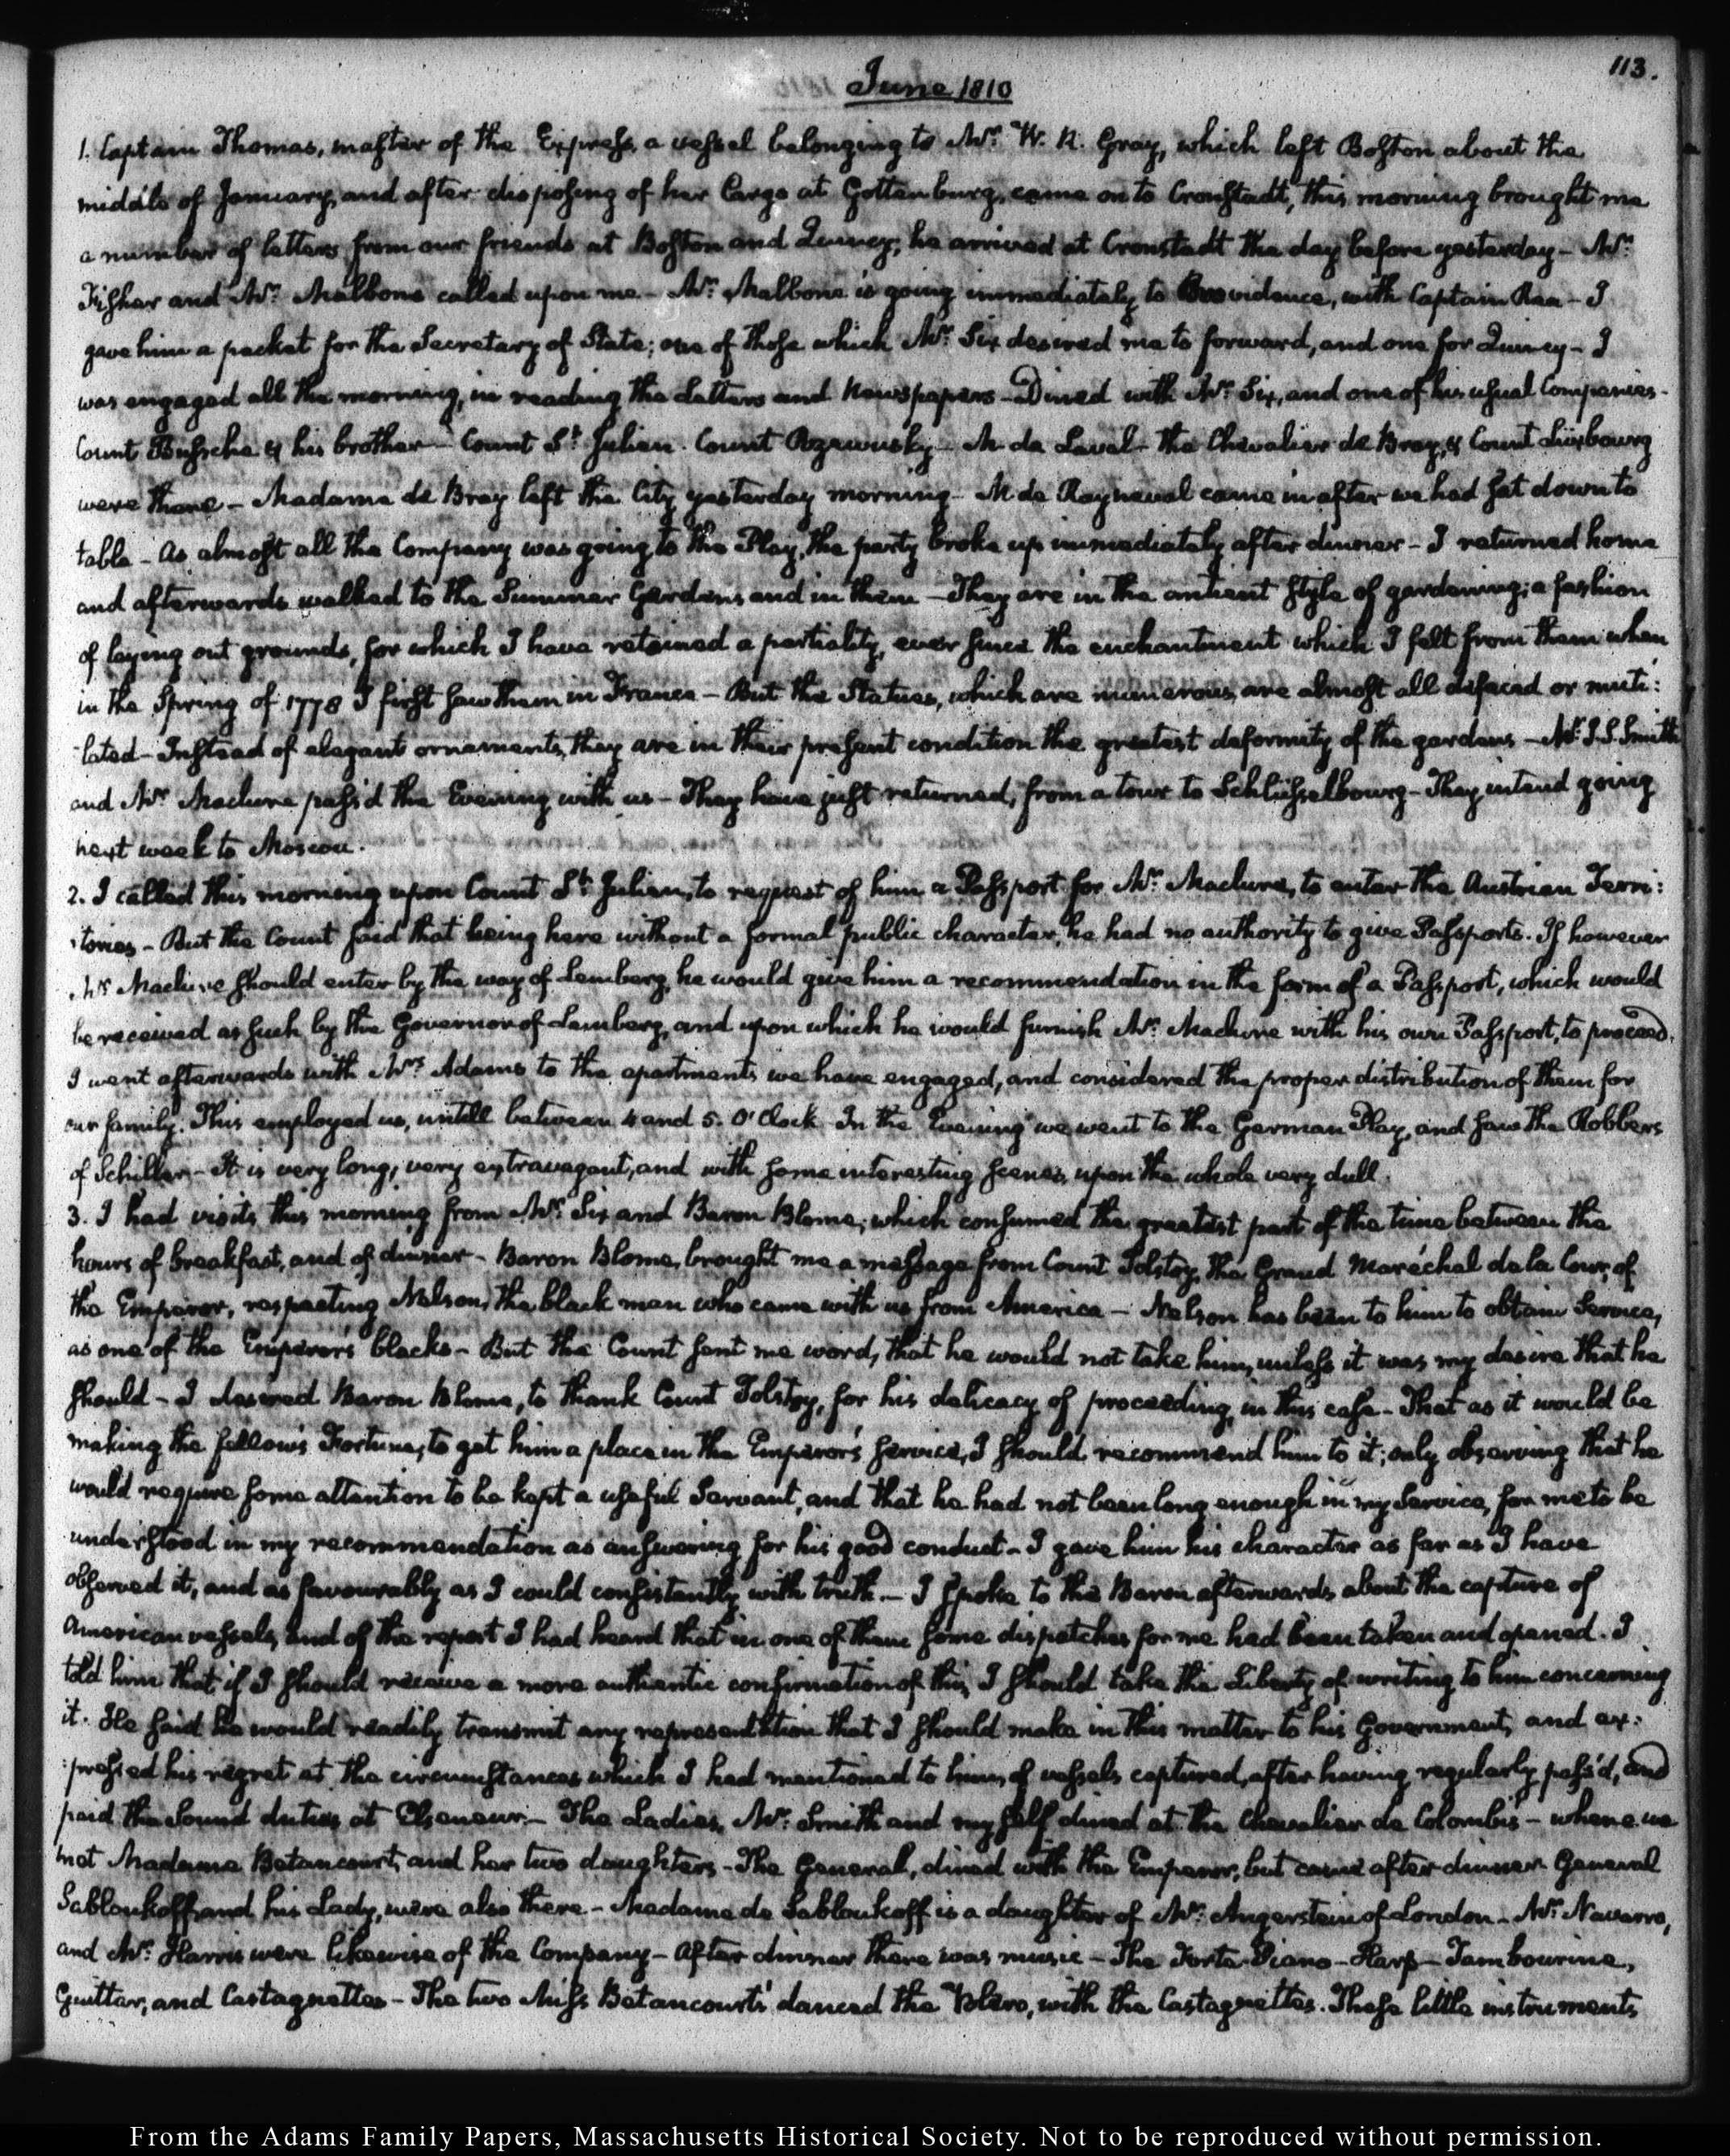 113.
June 1810
1. Captain Thomas, master of the Express, a vessel belonging to Mr. W. R. Gray, which left Boston about the
middle of January, and after disposing of her Cargo at Gottenburg, came on to Cronstadt, this morning brought me
a number of letters from our friends at Boston and Quincy; he arrived at Cronstadt the day before yesterday — Mr.
Fisher and Mr. Malbone called upon me — Mr. Malbone is going immediately to Providence, with Captain Rea — I
gave him a packet for the Secretary of State; one of those which Mr. Six desired me to forward, and one for Quincy — I
was engaged all the morning, in reading the Letters and Newspapers — Dined with Mr. Six, and one of his usual Companies —
Count Bussche & his brother — Count St. Julien. Count Rzewusky — M de Laval — the Chevalier de Bray, & Count Luxbourg
were there — Madame de Bray left the City yesterday morning — M de Rayneval came in after we had sat down to
table — As almost all the Company was going to the Play, the party broke up immediately after dinner — I returned home
and afterwards walked to the Summer Gardens and in them — They are in the antient style of gardening; a fashion
of laying out grounds, for which I have retained a partiality, ever since the enchantment which I felt from them when
in the Spring of 1778 I first saw them in France — But the Statues, which are numerous, are almost all defaced or muti:
:lated — Instead of elegant ornaments, they are in their present condition the greatest deformity of the gardens — Mr. J. S. Smith
and Mr. Maclure pass'd the Evening with us — They have just returned, from a tour to Schlüsselbourg — They intend going
next week to Moscow.
2. I called this morning upon Count St. Julien, to request of him a Passport for Mr. Maclure, to enter the Austrian Terri:
:tories — But the Count said that being here without a formal public character, he had no authority to give Passports. If however
Mr. Maclure should enter by the way of Lemberg, he would give him a recommendation in the form of a Passport, which would
be received as such by the Governor of Lemberg, and upon which he would furnish Mr. Maclure with his own Passport, to proceed.
I went afterwards with Mrs. Adams to the apartments we have engaged, and considered the proper distribution of them for
our family. This employed us, untill between 4 and 5. O'Clock. In the Evening we went to the German Play, and saw the Robbers
of Schiller — It is very long, very extravagant, and with some interesting scenes, upon the whole very dull.
3. I had visits this morning from Mr. Six and Baron Blome, which consumed the greatest part of the time between the
hours of breakfast, and of dinner — Baron Blome, brought me a message from Count Tolstoy, the Grand Maréchal de la Cour, of
the Emperor, respecting Nelson, the black man who came with us from America — Nelson has been to him to obtain Service,
as one of the Emperor's blacks — But the Count sent me word, that he would not take him, unless it was my desire that he
should — I desired Baron Blome, to thank Count Tolstoy, for his delicacy of proceeding, in this case — That as it would be
making the fellow's Fortune, to get him a place in the Emperor's service, I should recommend him to it; only observing that he
would require some attention to be kept a useful Servant, and that he had not been long enough in my Service, for me to be
understood in my recommendation as answering for his good conduct — I gave him his character as far as I have
observed it, and as favourably as I could consistently with truth. — I spoke to the Baron afterwards, about the capture of
American vessels, and of the report I had heard that in one of them some dispatches for me had been taken and opened. I
told him that if I should receive a more authentic confirmation of this, I should take the Liberty of writing to him concerning
it. He said he would readily transmit any representation that I should make in this matter to his Government, and ex:
:pressed his regret at the circumstances which I had mentioned to him, of vessels captured, after having regularly pass'd, and
paid the Sound duties at Elseneur. — The Ladies, Mr. Smith and myself dined at the Chevalier de Colombi's — where we
met Madame Betancourt, and her two daughters — The General, dined with the Emperor, but came after dinner. General
Sabloukoff, and his Lady, were also there — Madame de Sabloukoff is a daughter of Mr. Angerstein of London — Mr. Navarro,
and Mr. Harris were likewise of the Company — After dinner there was music — The Forte-Piano — Harp — Tambourine,
Guittar, and Castagnettes — The two Miss Betancourts' danced the Bolero, with the Castagnettes. These little instruments
From the Adams Family Papers, Massachusetts Historical Society. Not to be reproduced without permission.